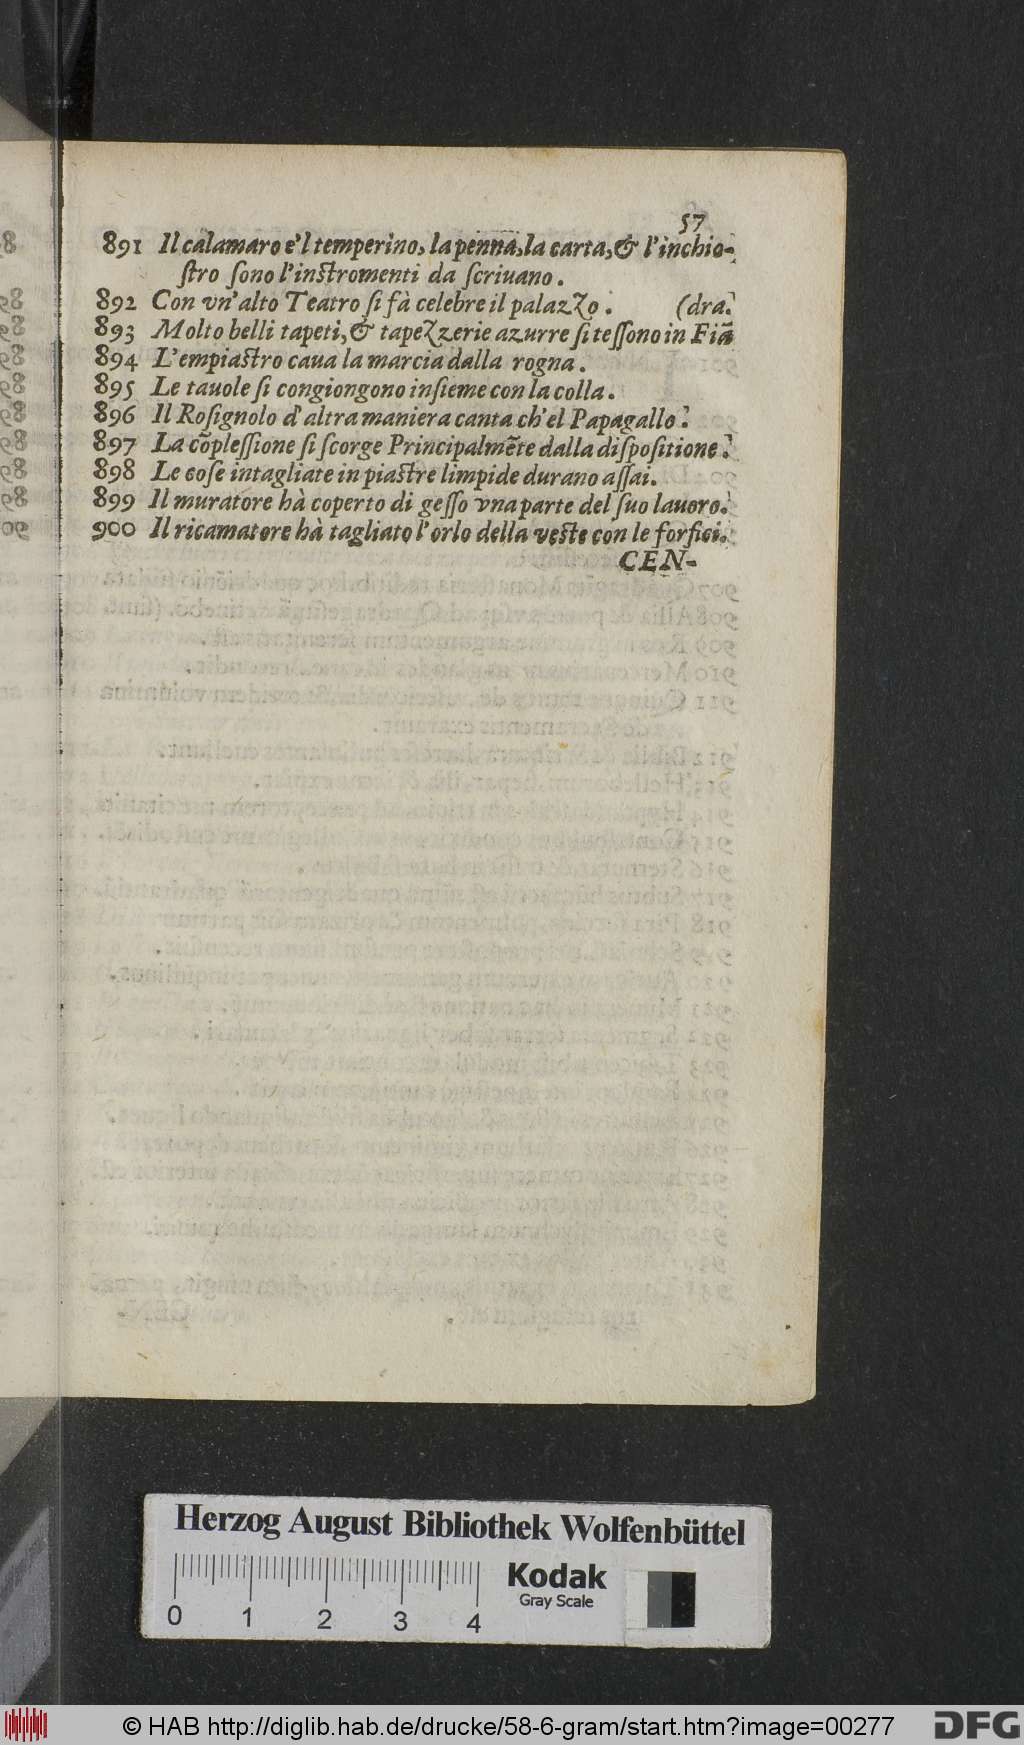 57
891 Il calamaro e'l temperino, la penna, la carta, & l'inchio-
ſtro ſono l'inſtromenti da ſcriuano.
892 Con vn'alto Teatro ſi fà celebre il palazzo. (dra.
893 Molto belli tapeti, & tapezzerie azurre ſi teſſono in Fiā
894 L'empiaſtro caua la marcia dalla rogna.
895 Le tauole ſi congiongono inſieme con la colla.
896 Il Roſignolo d'altra maniera canta ch'el Papagallo.
897 La cōpleſſione ſi ſcorge Principalmēte dalla diſpoſitione.
898 Le coſe intagliate in piaſtre limpide durano aſſai.
899 Il muratore hà coperto di geſſo vna parte del ſuo lauoro.
900 Il ricamatore hà tagliato l'orlo della veſte con le forfici.
CEN-
Herzog August Bibliothek Wolfenbüttel
0 1 2 3 4
Kodak
Gray Scale
© HAB http://diglib.hab.de/drucke/58-6-gram/start.htm?image=00277
DFG